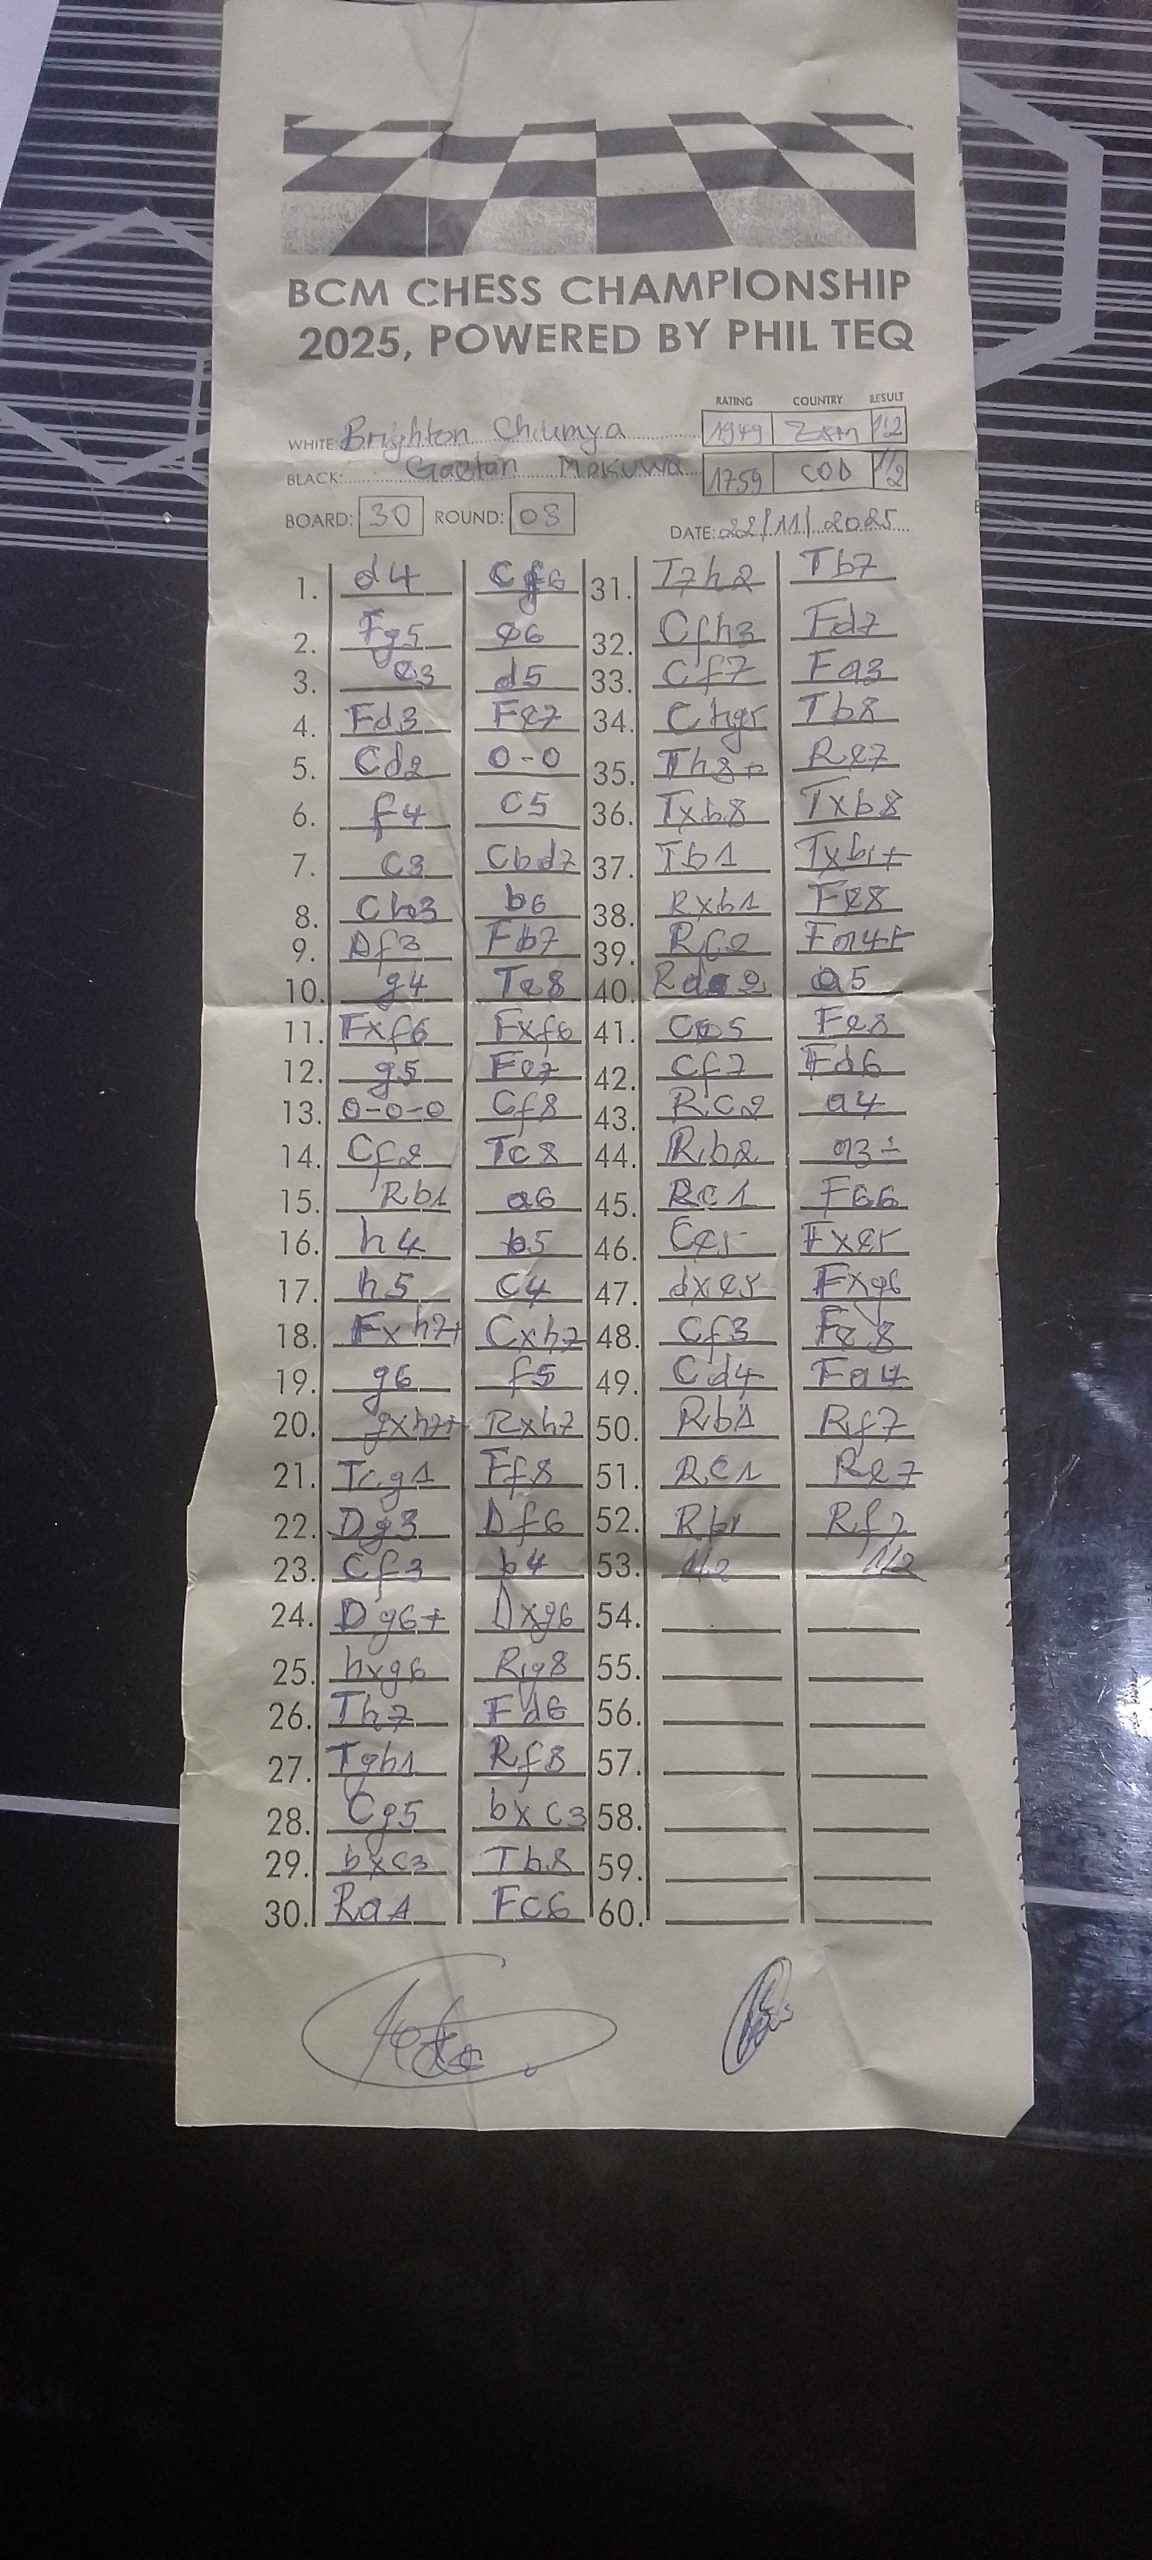 BCM CHESS CHAMPIONSHIP
2025, POWERED BY PHIL TEQ
RATING COUNTRY RESULT
WHITE: Brighton Chiumya 1949 Zam 1/2
BLACK: Gaetan Makuwa 1759 COD 1/2
BOARD: 30 ROUND: 08 DATE: 22/11/2025
1. d4 Cf6
2. Fg5 e6
3. e3 d5
4. Fd3 Fe7
5. Cd2 0-0
6. f4 C5
7. C3 Cbd7
8. Ch3 b6
9. Df3 Fb7
10. g4 Te8
11. Fxf6 Fxf6
12. g5 Fe7
13. 0-0-0 Cf8
14. Cf2 Tc8
15. Rb1 a6
16. h4 b5
17. h5 C4
18. Fxh7+ Cxh7
19. g6 f5
20. gxh7+ Rxh7
21. Tcg1 Ff8
22. Dg3 Df6
23. Cf3 b4
24. Dg6+ Dxg6
25. hxg6 Rg8
26. Th7 Fd6
27. Tgh1 Rf8
28. Cg5 bxc3
29. bxc3 Tb8
30. Ra1 Fc6
31. T7h2 Tb7
32. Cfh3 Fd7
33. Cf7 Fa3
34. Chg5 Tb8
35. Th8+ Re7
36. Txb8 Txb8
37. Tb1 Txb1+
38. Rxb1 Fe8
39. Rc2 Fa4+
40. a5
41. Fe8
42. Cf7 Fd6
43. Rc2 a4
44. Rb2 a3+
45. Rc1
46. Ce5 Fxe5
47. dxe5 Fxg6
48. Cf3 Fe8
49. Cd4 Fa4
50. Rb1 Rf7
51. Rc1 Re7
52. Rb1 Rf7
53. 1/2 1/2
54.
55.
56.
57.
58.
59.
60.